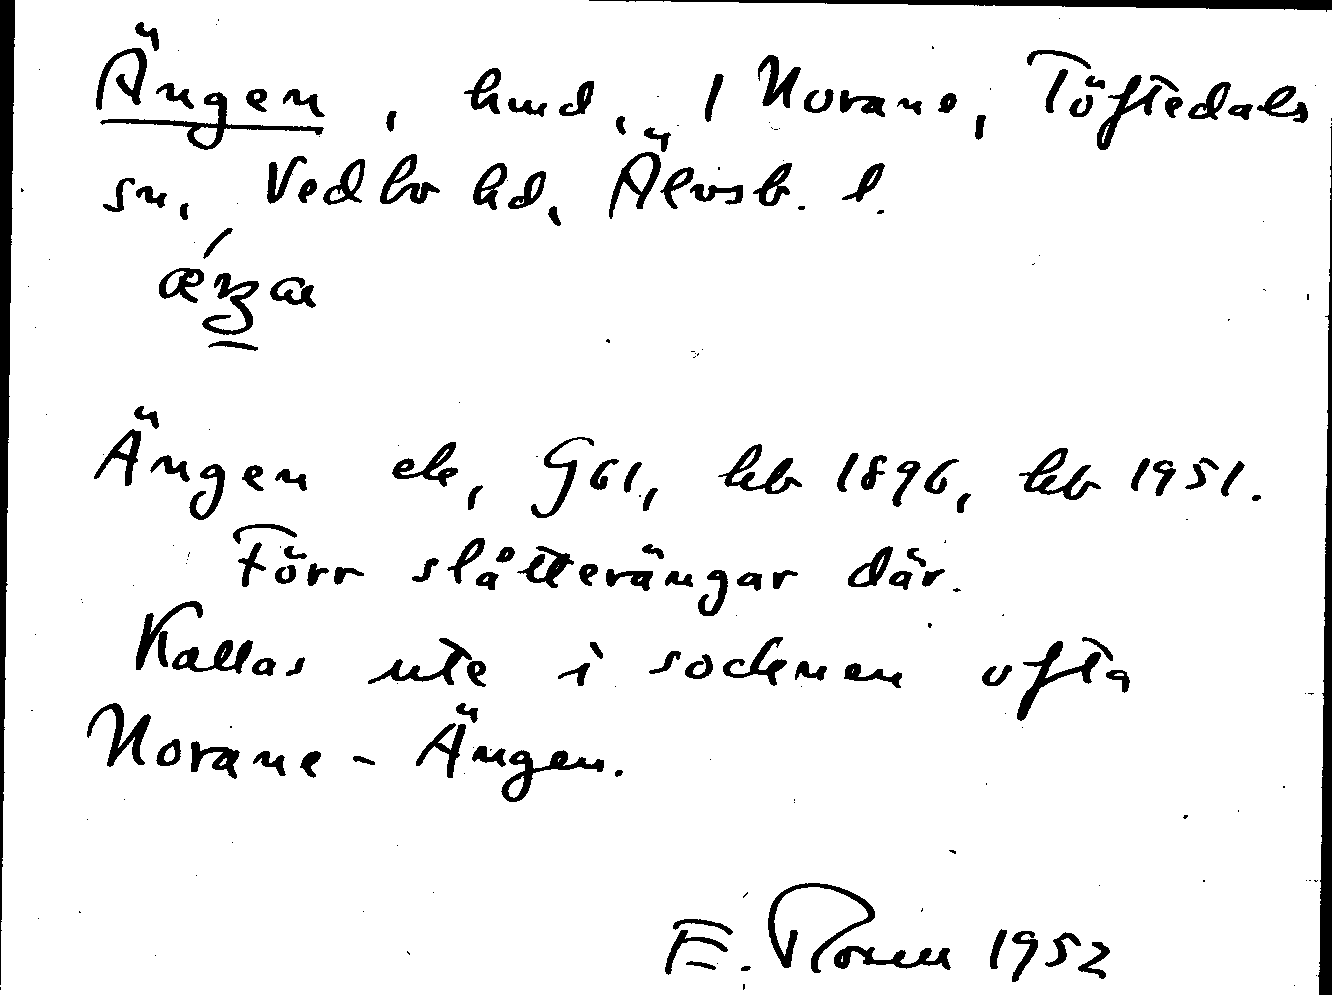 Ängen, hmd, 1 Norane, Töftedals
sn, Vedbo hd, Älvsb. l.
Ängen ek, G61, hb 1896, kb 1951.
Förr slåtterängar där.
Kallas ute i socknen ofta
Norane-Ängen.
E. Rosen 1952